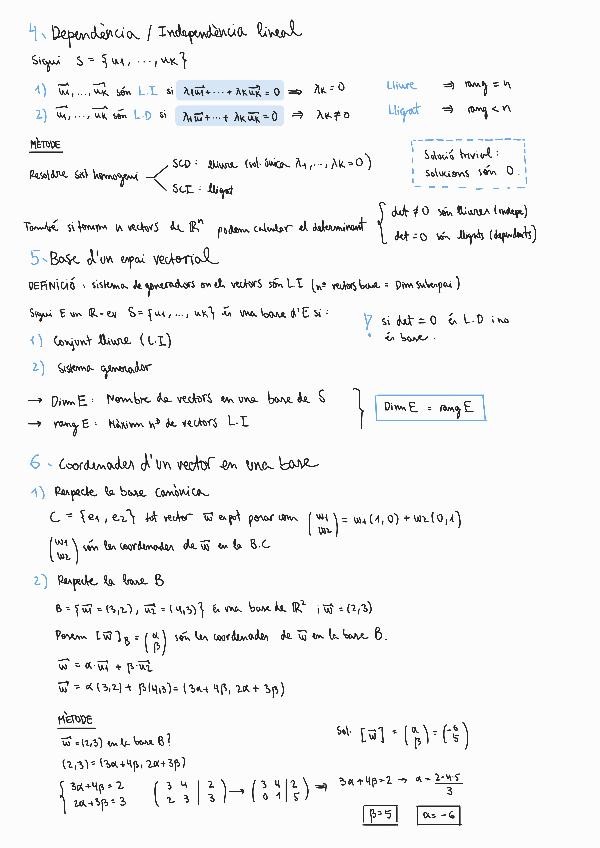 4. Dependència / Independència lineal
Sigui S = {u1, ..., uK}
1) u⃗1, ..., u⃗K són L.I si λ1u⃗1+...+λKu⃗K = 0 ⇒ λK = 0 Lliure ⇒ rang = n
2) u⃗1, ..., u⃗K són L.D si λ1u⃗1+...+λKu⃗K = 0 ⇒ λK ≠ 0 Lligat ⇒ rang < n
MÈTODE
Resoldre sist homogeni
SCD: lliure (sol. única λ1, ..., λK = 0)
SCI: lligat
Solució trivial:
solucions són 0.
També si tenim n vectors de Rⁿ podem calcular el determinant
det ≠ 0 són lliures (indepe)
det = 0 són lligats (dependents)
5. Base d'un espai vectorial
DEFINICIÓ: sistema de generadors on els vectors són L.I (nº vectors base = Dim subespai)
Sigui E un R-ev S = {u1, ..., uK} és una base d'E si:
! si det = 0 és L.D i no
és base.
1) Conjunt lliure (L.I)
2) Sistema generador
→ Dim E: Nombre de vectors en una base de S
→ rang E: Màxim nº de vectors L.I
Dim E = rang E
6. Coordenades d'un vector en una base
1) Respecte la base canònica
C = {e1, e2} tot vector w⃗ es pot posar com (w1 w2) = w1(1,0) + w2(0,1)
(w1 w2) són les coordenades de w⃗ en la B.C
2) Respecte la base B
B = {u⃗1 = (3,2), u⃗2 = (4,3)} és una base de R² i w⃗ = (2,3)
Posem [w⃗]B = (α β) són les coordenades de w⃗ en la base B.
w⃗ = α·u⃗1 + β·u⃗2
w⃗ = α(3,2) + β(4,3) = (3α+4β, 2α+3β)
MÈTODE
w⃗ = (2,3) en la base B?
Sol. [w⃗] = (α β) = (-6 5)
(2,3) = (3α+4β, 2α+3β)
{3α+4β = 2
2α+3β = 3
(3 4 | 2
2 3 | 3) → (3 4 | 2
0 1 | 5) ⇒ 3α+4β = 2 → α = 2-4·5 / 3
β = 5 α = -6